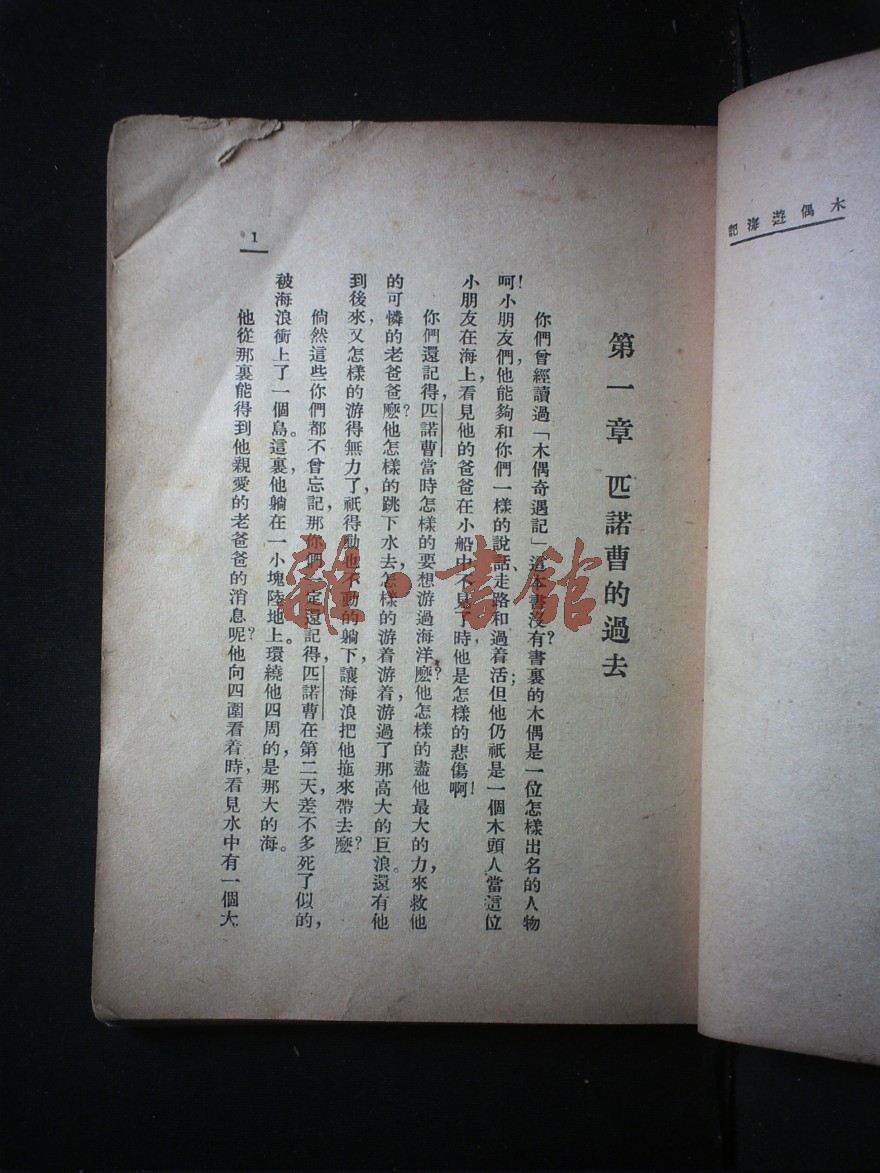 木偶遊海記
第一章 匹諾曹的過去
你們曾經讀過「木偶奇遇記」這本書沒有?書裏的木偶是一位怎樣出名的人物
呵!小朋友們,他能夠和你們一樣的說話、走路和過着活;但他仍祇是一個木頭人當這位
小朋友在海上,看見他的爸爸在小船中不見了時,他是怎樣的悲傷啊!
你們還記得,匹諾曹當時怎樣的要想游過海洋麼?他怎樣的盡他最大的力,來救他
的可憐的老爸爸麼?他怎樣的跳下水去,怎樣的游着游着,游過了那高大的巨浪。還有他
到後來,又怎樣的游得無力了,祇得動也不動的躺下,讓海浪把他拖來帶去麼?
倘然這些你們都不曾忘記,那你們一定還記得,匹諾曹在第二天,差不多死了似的,
被海浪衝上了一個島。這裏,他躺在一小塊陸地上。環繞他四周的,是那大的海。
他從那裏能得到他親愛的老爸爸的消息呢?他向四圍看着時,看見水中有一個大
1
雜·書館